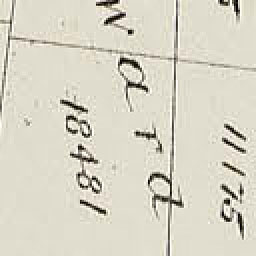 Ward
18481
11175